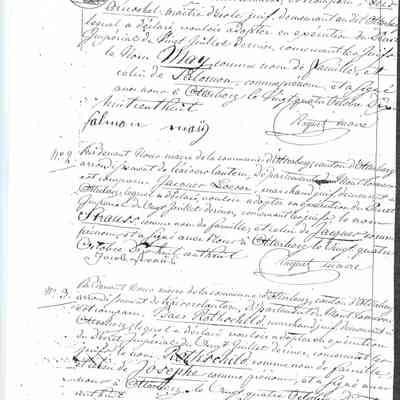 maître d'école juif, demeurant audit Otterberg
lequel a déclaré vouloir adopter en exécution du Décret
Impérial de Vingt Juillet dernier, concernant les Juifs
le Nom May comme nom de famille, et
celui de Salomon, comme prénom, et a signé
avec nous à Otterberg le vingt quatre Octobre
huit cent huit
Raquet maire
salmon may
No. 2. Pardevant Nous maire de la commune d'Otterberg, canton d'Otterberg
arrondissement de Kaiserslautern, département du Mont Tonnerre
est comparu Jacques marchand juif demeurant à
Otterberg, lequel a déclaré vouloir adopter en exécution du Décret
Impérial du Vingt Juillet dernier, concernant les juifs, le nom
Strauss comme nom de famille, et celui de Jacques comme
prénom, et a signé avec Nous à Otterberg le Vingt quatre
Octobre huit cent huit
Raquet maire
No. 3. Pardevant Nous maire de la commune d'Otterberg, canton d'Otterberg
arrondissement de Kaiserslautern, département du Mont Tonnerre
est comparu Baer Rothschild, marchand juif demeurant à
Otterberg lequel a déclaré vouloir adopter en exécution
du Décret Impérial du Vingt Juillet dernier, concernant les
juifs, le nom Rothschild comme nom de famille
et celui de Josephe comme prénom, et a signé avec
nous à Otterberg le Vingt quatre Octobre